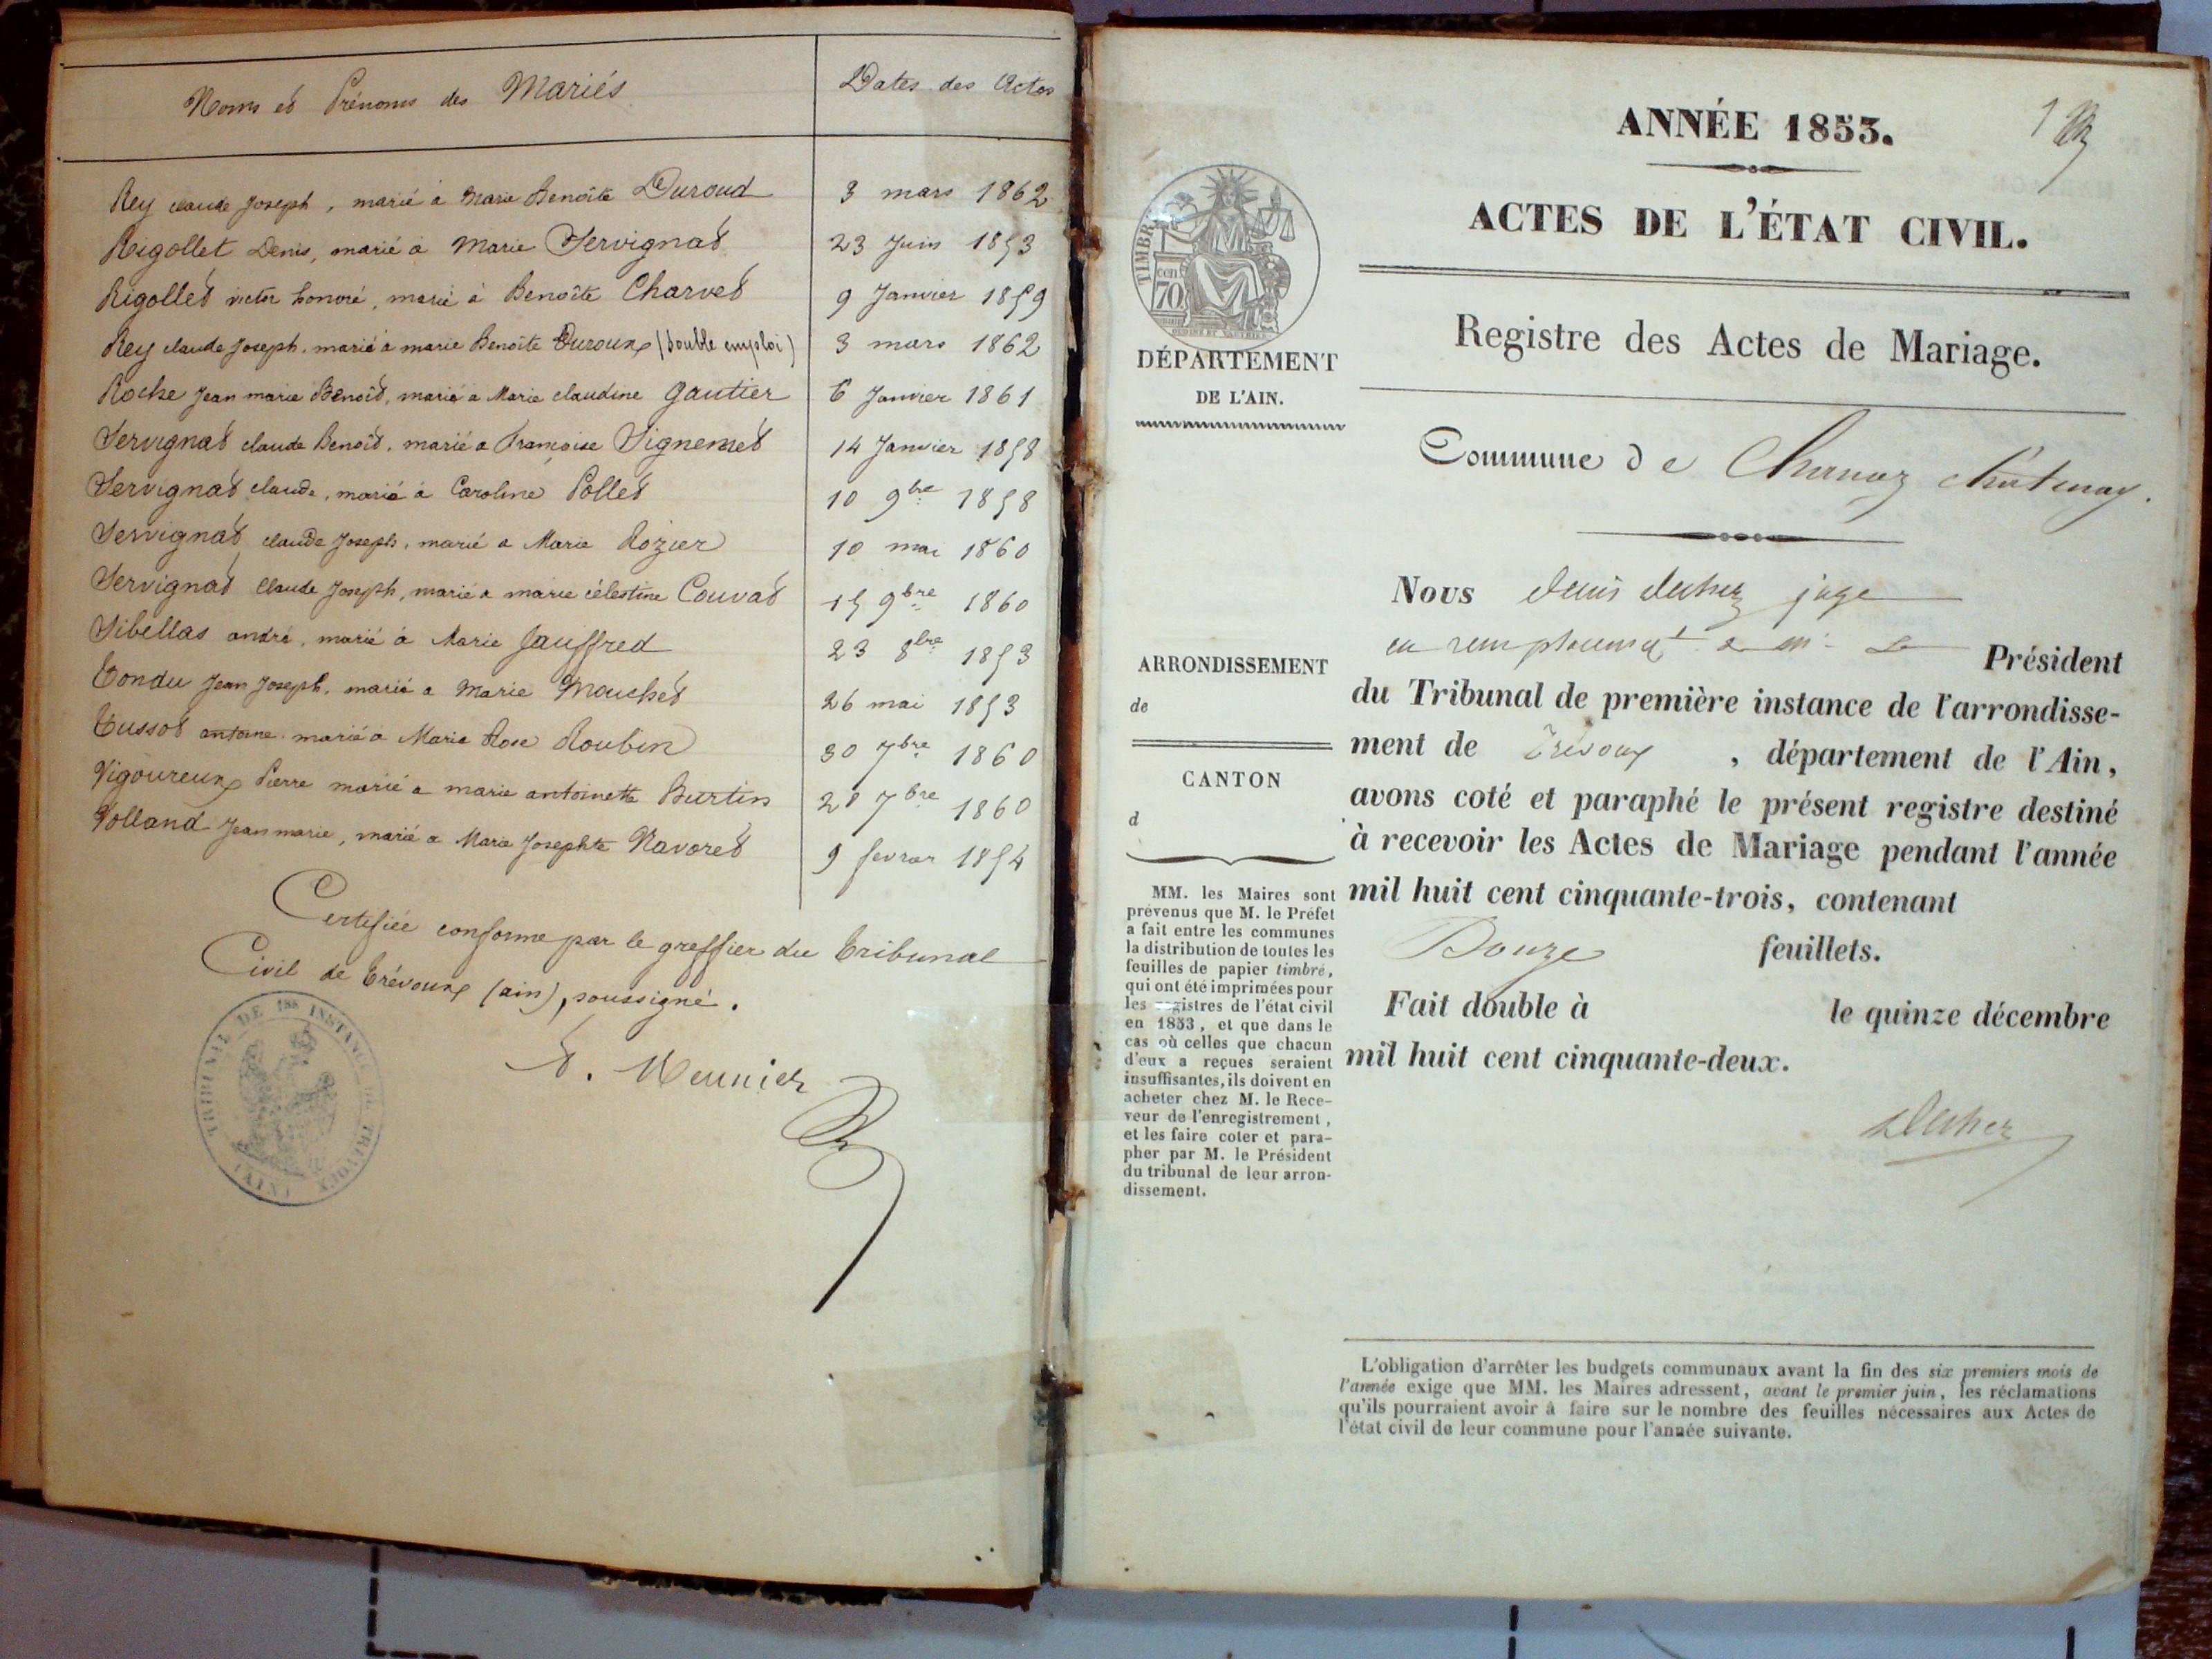 Noms et Prénoms des Mariés
Dates des Actes
Rey claude Joseph, marié à Marie Benoîte Duroud 3 mars 1862
Rigollet Denis, marié à Marie Servignat 23 Juin 1853
Rigollet victor honoré, marié à Benoîte Charvet 9 Janvier 1859
Rey claude Joseph, marié à marie Benoîte Duroux (double emploi) 3 mars 1862
Roche Jean marie Benoît, marié a Marie claudine Gautier 6 Janvier 1861
Servignat claude Benoît, marié a Françoise Signemet 14 Janvier 1858
Servignat claude, marié à Caroline Pollet 10 9bre 1858
Servignat claude Joseph, marié a Marie Rozier 10 mai 1860
Servignat Claude Joseph, marié a marie célestine Couvat 15 9bre 1860
Sibellas andré, marié à Marie Jauffred 23 8bre 1853
Tondu Jean Joseph, marié a Marie Mouchet 26 mai 1853
Tussot antoine marié a Marie Rose Roubin 30 7bre 1860
Vigoureux Pierre marié a marie antoinette Burtin 28 7bre 1860
Volland Jean marie, marié a Marie Josephte Navoret 9 fevrier 1854
Certifiée conforme par le greffier du Tribunal
Civil de Trévoux (ain), soussigné.
Meunier
TRIBUNAL DE 1RE INSTANCE DE TRÉVOUX (AIN)
ANNÉE 1853.
1
ACTES DE L'ÉTAT CIVIL.
Registre des Actes de Mariage.
TIMBRE
cen
70
DÉPARTEMENT
DE L'AIN.
Commune de Charnoz Châtenay.
ARRONDISSEMENT
de
CANTON
d
MM. les Maires sont
prévenus que M. le Préfet
a fait entre les communes
la distribution de toutes les
feuilles de papier timbré,
qui ont été imprimées pour
les registres de l'état civil
en 1853, et que dans le
cas où celles que chacun
d'eux a reçues seraient
insuffisantes, ils doivent en
acheter chez M. le Rece-
veur de l'enregistrement,
et les faire coter et para-
pher par M. le Président
du tribunal de leur arron-
dissement.
Nous Denis juge
en remplacement de M. le Président
du Tribunal de première instance de l'arrondisse-
ment de Trévoux, département de l'Ain,
avons coté et paraphé le présent registre destiné
à recevoir les Actes de Mariage pendant l'année
mil huit cent cinquante-trois, contenant
Douze feuillets.
Fait double à le quinze décembre
mil huit cent cinquante-deux.
L'obligation d'arrêter les budgets communaux avant la fin des six premiers mois de
l'année exige que MM. les Maires adressent, avant le premier juin, les réclamations
qu'ils pourraient avoir à faire sur le nombre des feuilles nécessaires aux Actes de
l'état civil de leur commune pour l'année suivante.